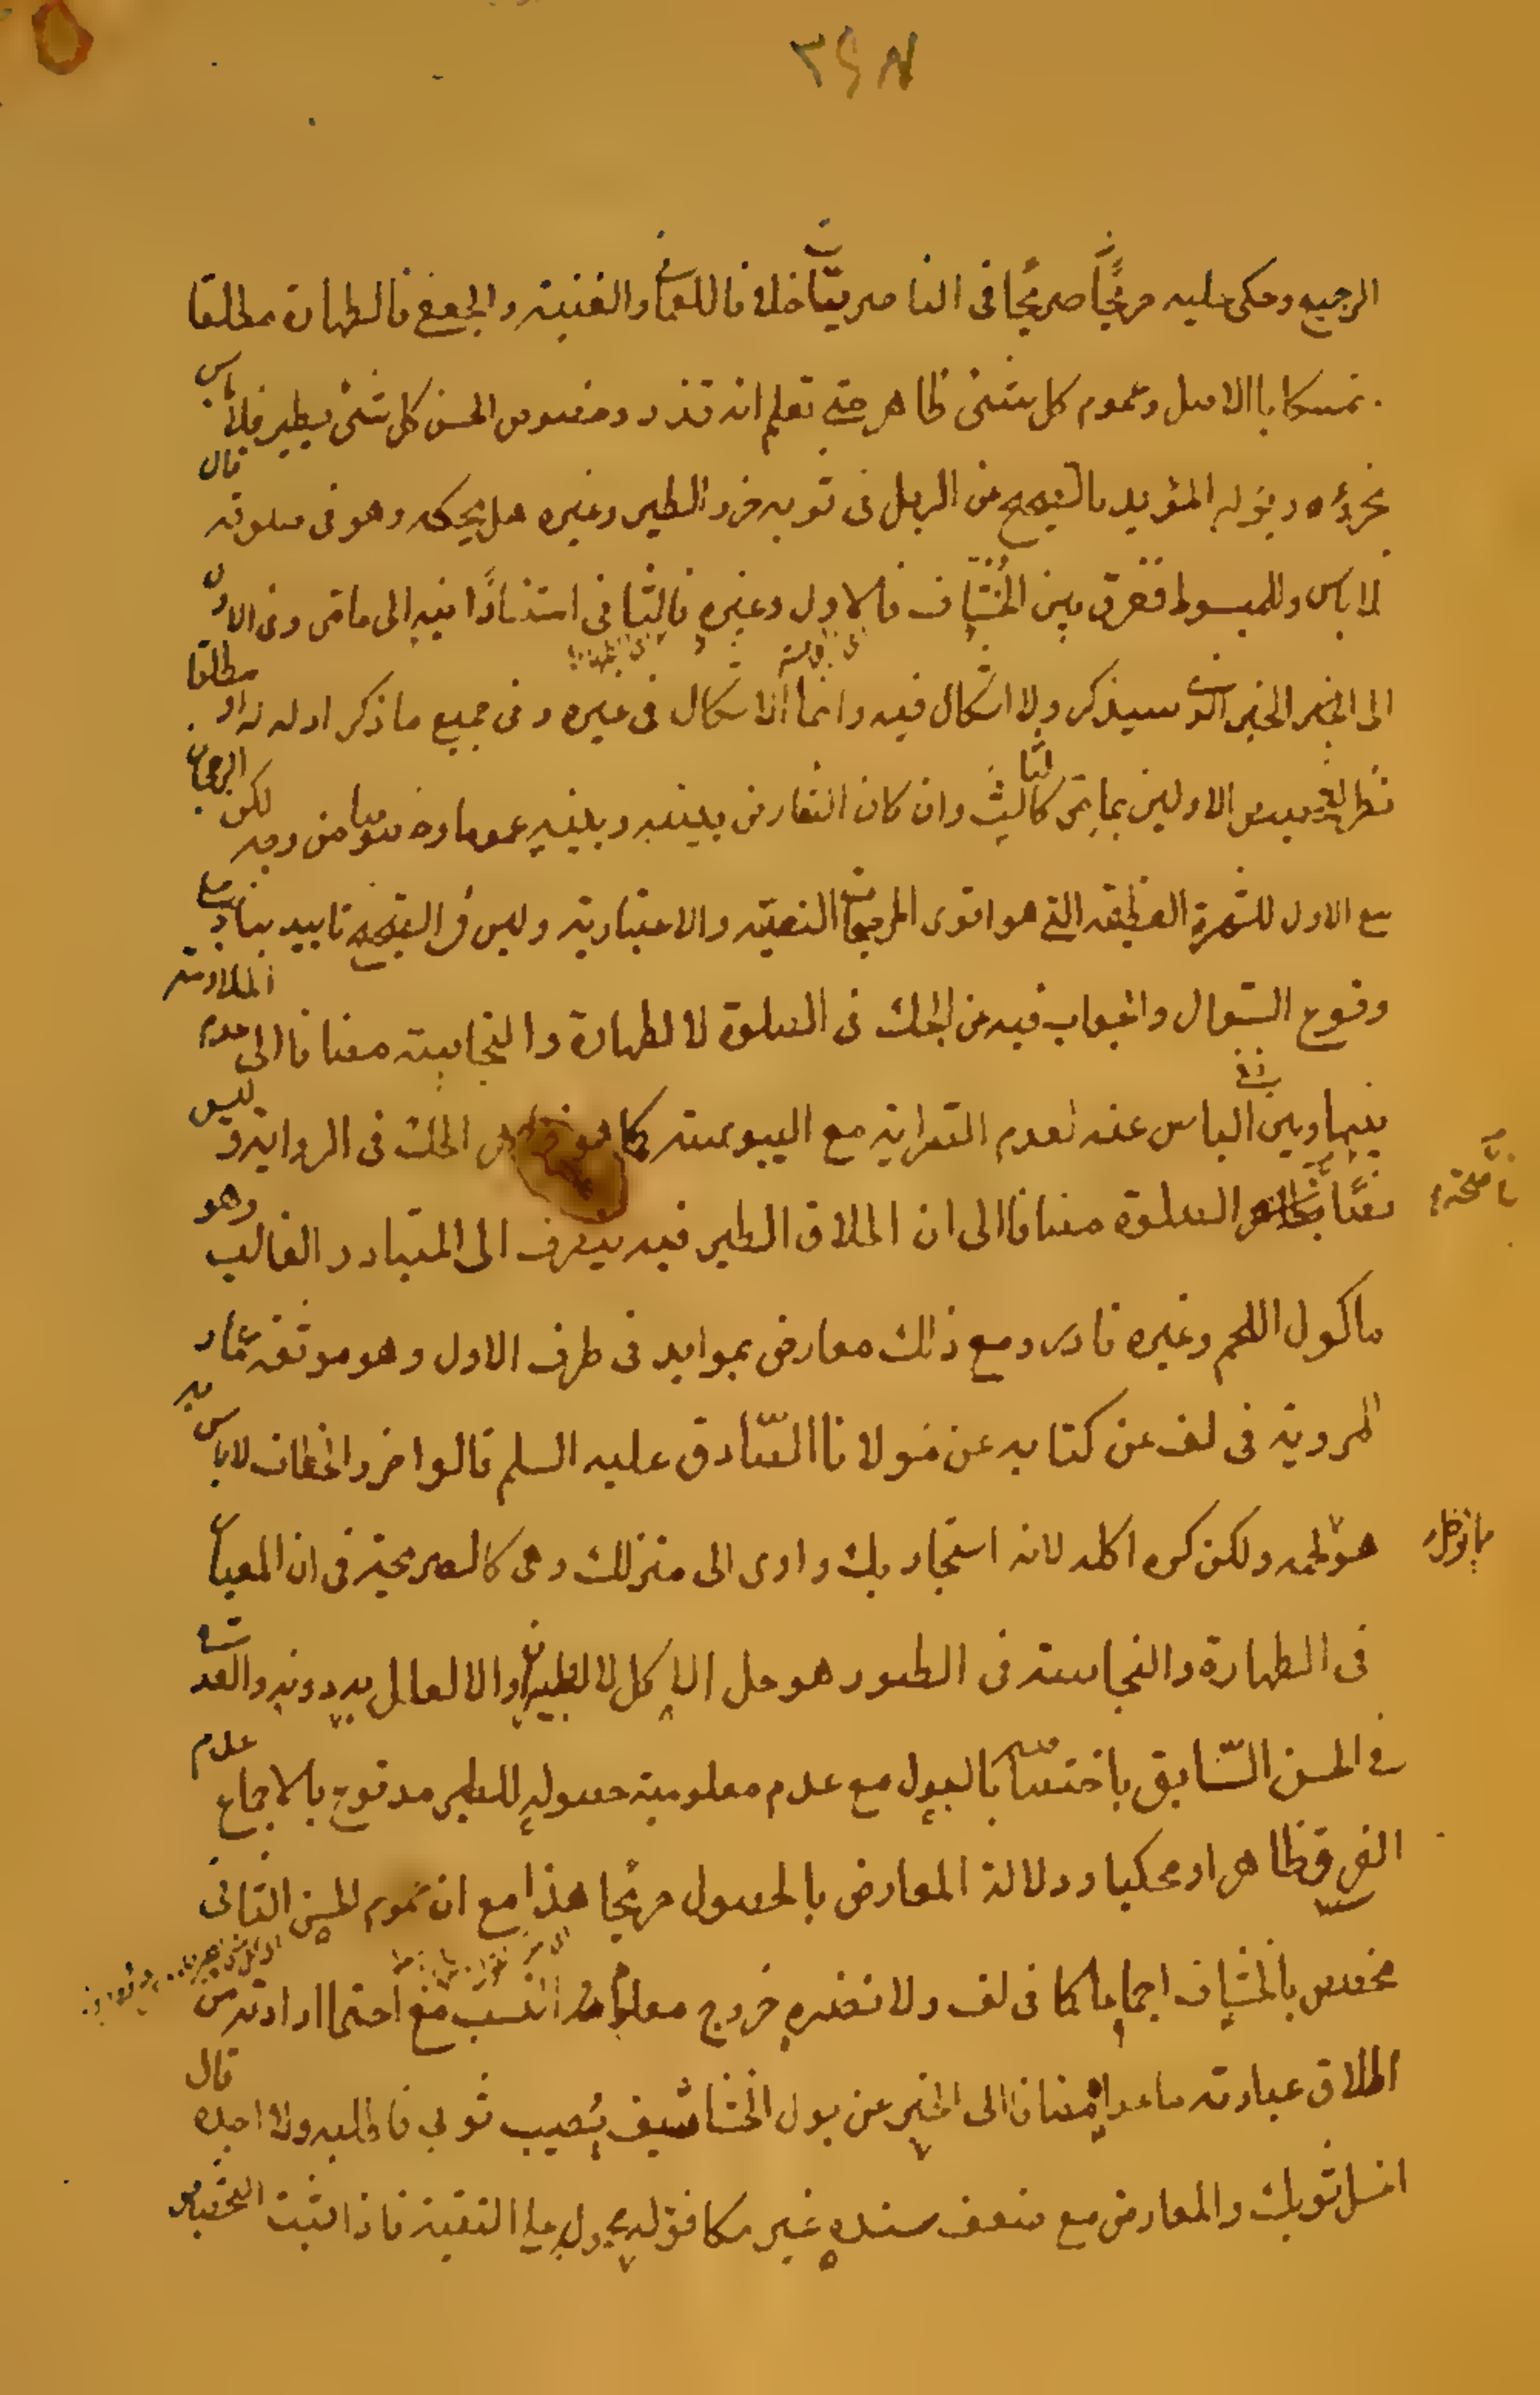 ٣٤٨
الرجيع وحكى عليه صريحًا في الناصريات خلافا للعماني والفقيه والجعفي فالطهارة مطلقا
تمسكا بالاصل وعموم كل شئ طاهر حتى تعلم انه قذر وخصوص الحسن كل شئ يطير فلا باس
بخرؤه وبوله المؤيد بالصحيح عن الرجل في ثوبه خرء الطير وغيره هل يحكه وهو في صلوته قال
لا باس وللمبسوط ففرق بين الخشاف فالاول وغيره فالثاني استنادًا فيه الى ما مر وفي الاول
الى الخبر الذي سيذكر ولا اشكال فيه وانما الاشكال في غيره وفي جميع ما ذكر ادله له او مطلقا
نظر الاولين بما مر كالثالث وان كان التعارض بينه وبينه عموما وخصوصا من وجه لكن الرجحان
مع الاول للشهرة العظيمة التي هو اقوى المرجحات النصية والاعتبارية وليس في الصحيح تاييد بناء على
وقوع السؤال والجواب فيه عن الحك في الصلوة لا الطهارة والنجاسة مضافا الى عدم الملازمة
بينها وبين نفي الباس عنه لعدم السراية مع اليبوسة كما هو الحك في الرواية وليس
الصلوة مضافا الى ان اطلاق الطير فيه ينصرف الى المتبادر الغالب وهو
ماكول اللحم وغيره نادر ومع ذلك معارض بموايد في طرف الاول وهو موثقة عمار
المروية في لف عن كتابه عن مولانا الصادق عليه السلم قالوا خرء الخطاف لا باس به
هو لحمه ولكن كره اكله لانه استجار بك واوى الى منزلك وهي كالصريحة في ان المعيار
في الطهارة والنجاسة في الطيور هو حل الاكل لا الطيران والا لعلل به دونه والقدح
في الحسن السابق باختصاصه بالبول مع عدم معلومية حصوله للطير مدفوع بالاجماع عدم
الفرق ظاهرا ومحكيا ودلالة المعارض بالحصول صريحًا هذا مع ان عموم الحسن الثاني
مخصص بالخشاف اجماعا كما في لف ولا تضره خروج معلوم النسب مع احتمال ارادته من
اطلاق عبارته ما عداه مضافا الى الخبر عن بول الخشاشيف يصيب ثوبي فاطلبه ولا اجده قال
اغسل ثوبك والمعارض مع ضعف سنده غير مكافؤ له محمول على التقية فاذا ثبت التخصيص